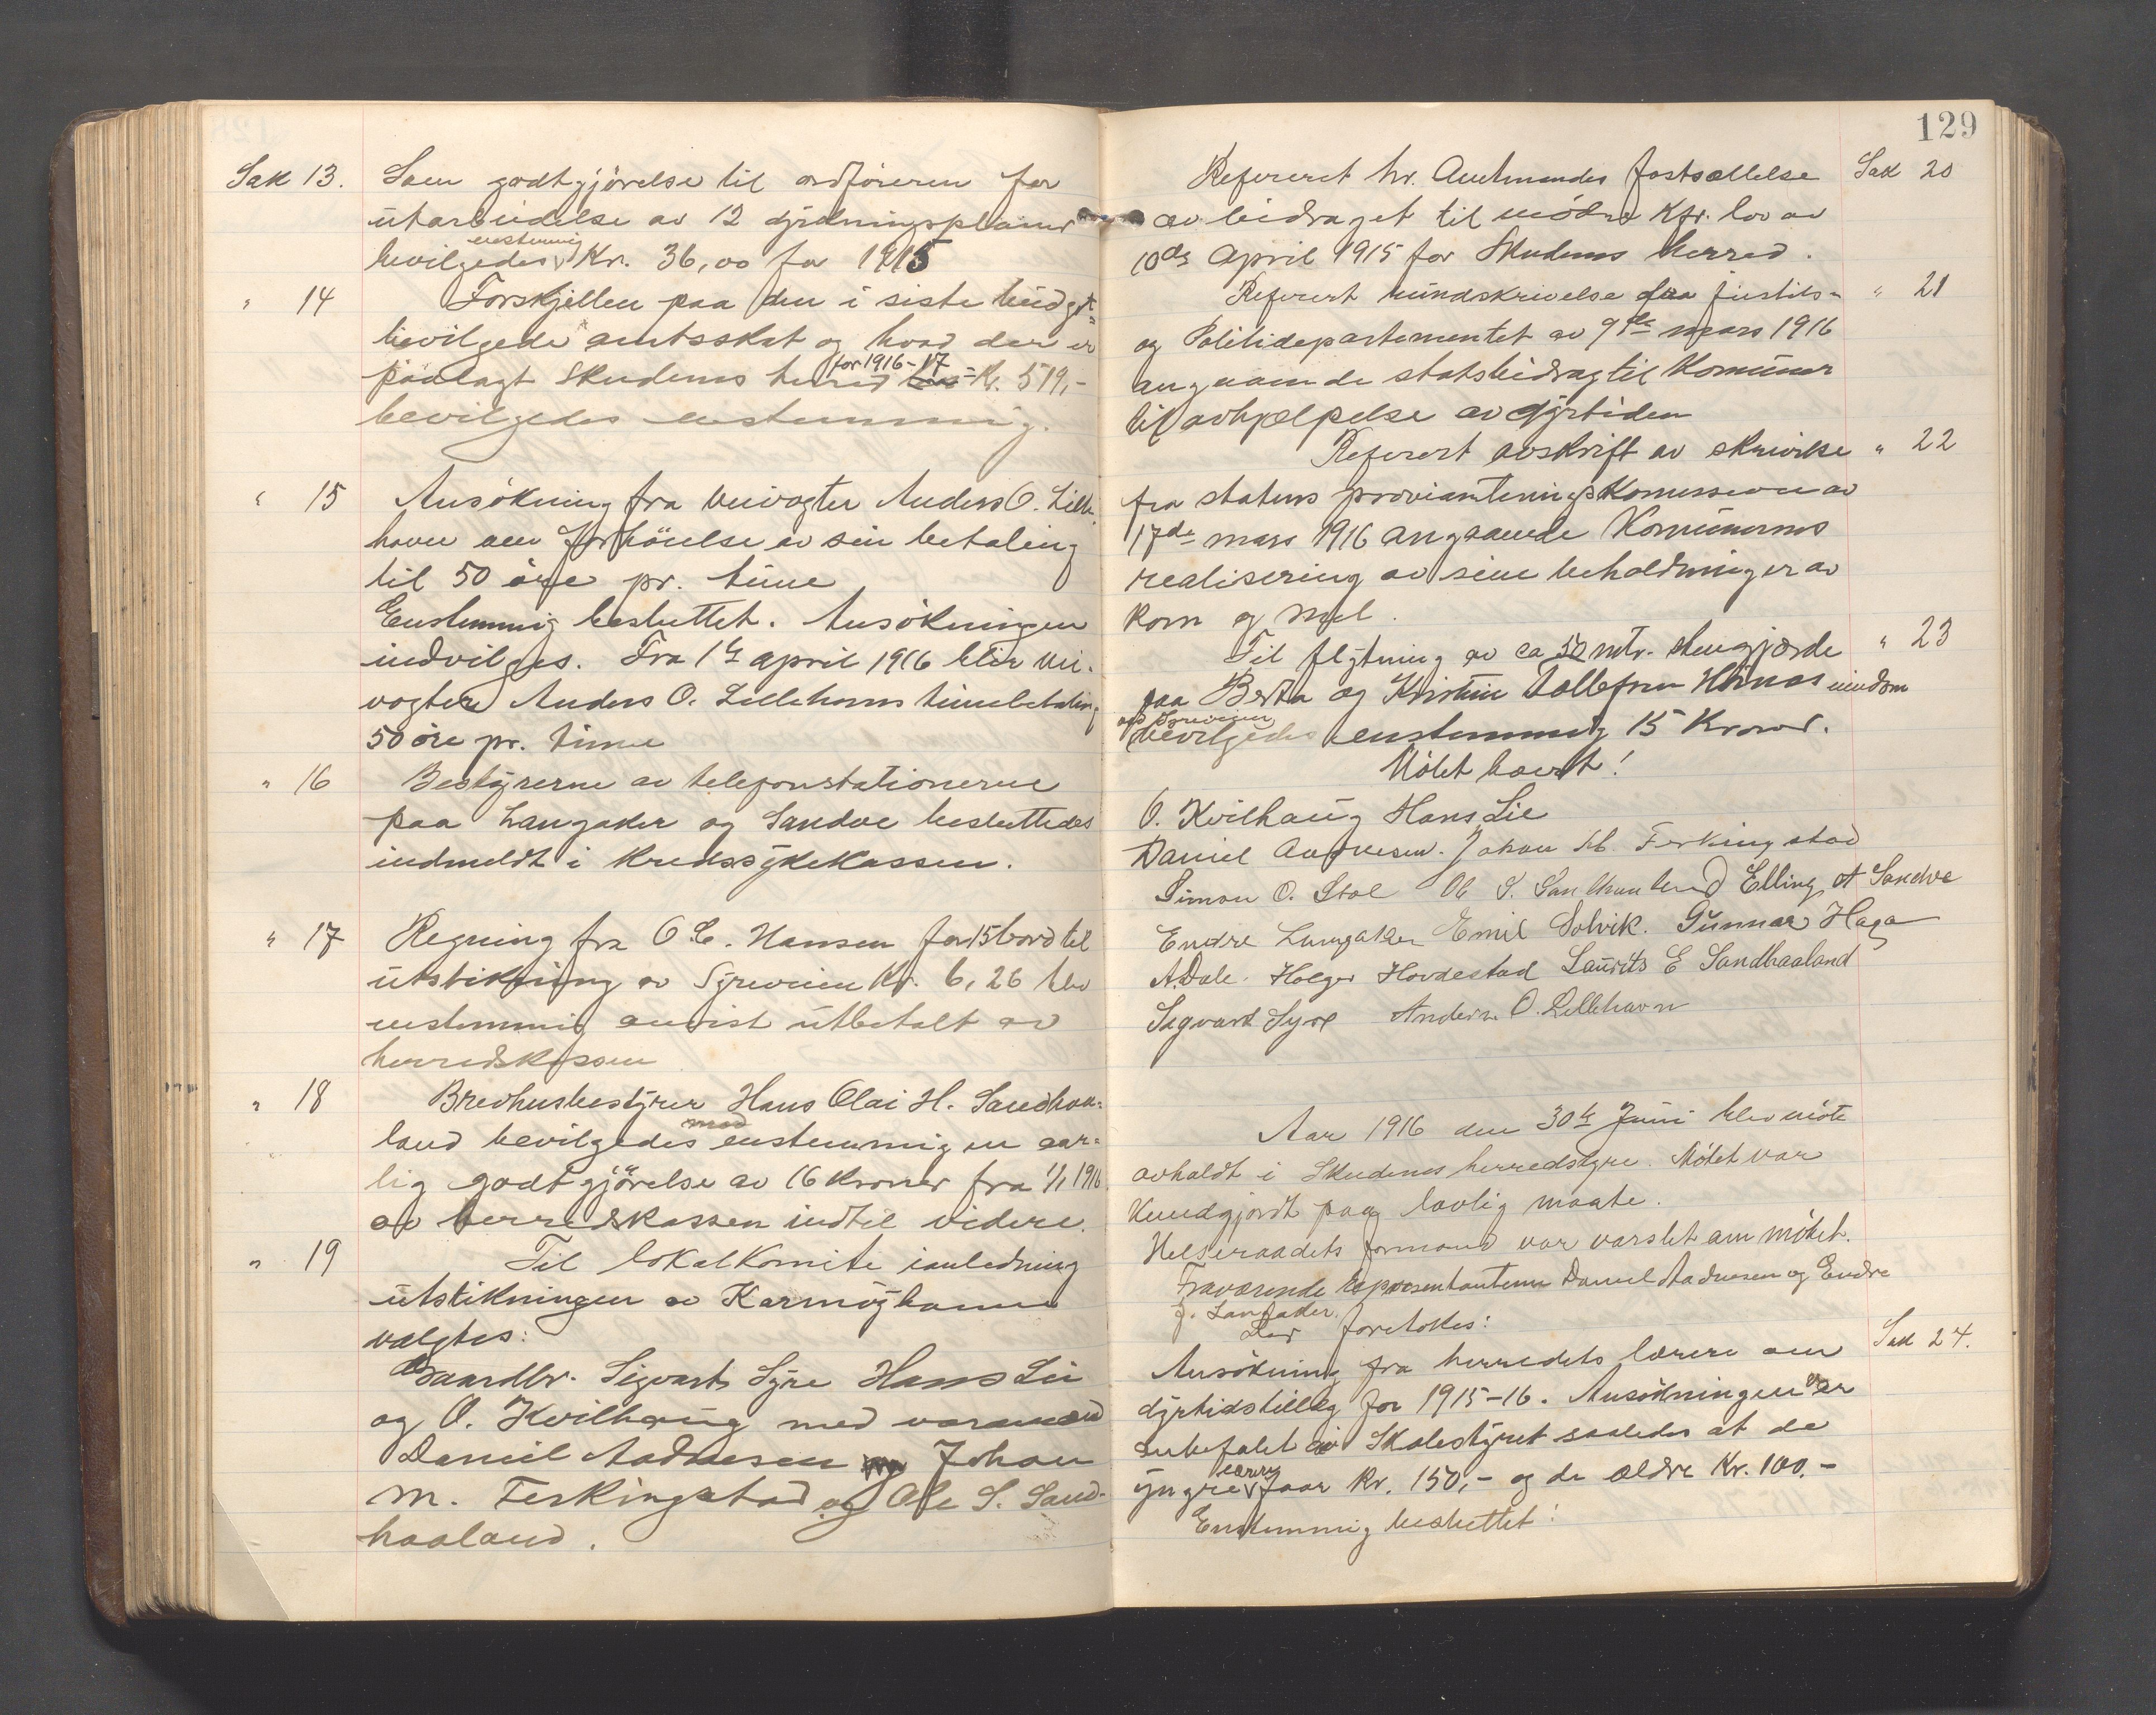 Sak 13. Som godtgjörelse til ordföreren for
utarbeidelse av 12 dyrkningsplaner
bevilgedes enstemmig Kr. 36,00 for 1915
" 14 Forskjellen paa den i siste budget
bevilgede amtsskat og hvad der er
paalagt Skudenes herred for 1916-17 Kr. 519,-
bevilgedes enstemmig.
" 15 Ansökning fra veivogter Anders O. Lille-
havn om forhöielse av sin betaling
til 50 öre pr. time
Enstemmig besluttet. Ansökningen
indvilges. Fra 1ste april 1916 blir vei-
vogter Anders O. Lillehavns timebetaling
50 öre pr. time
" 16 Bestyrerne av telefonstationerne
paa Langaker og Sandve besluttedes
indmeldt i Kredssykekassen.
" 17 Regning fra O. C. Hansen for 15 bord til
utstikning av Syreveien Kr. 6,26 blev
enstemmig anvist utbetalt av
herredskassen
" 18 Brevhusbestyrer Hans Olai H. Sandhaa-
land bevilgedes enstemmig en aar-
lig godtgjörelse av 16 Kroner fra 1/1 1916
av herredskassen indtil videre.
" 19 Til lokalkomite i anledning
utstikningen av Karmöybanen
valgtes:
Gaardbr. Sigvart Syre Hans Lie
og O. Kvilhaug med varamænd
Daniel Aadnesen Johan
M. Ferkingstad og Ole S. Sand-
haaland.
129
Refereret hr. Amtmandes fastsættelse Sak 20
av bidraget til mödre Kfr. lov av
10de April 1915 for Skudenes herred.
Referert rundskrivelse fra Justits- " 21
og Politidepartementet av 9de mars 1916
angaaende statsbidrag til Kommuner
til avhjælpelse av dyrtiden
Referert avskrift av skrivelse " 22
fra statens provianteringskommission av
17de mars 1916 angaaende Kommunernes
realisering av sine beholdninger av
korn og mel.
Til flytning av ca 50 mtr. stengjærde " 23
paa Berta og Kristine Tollefsen Hönes eiendom
ved Syreveien
bevilgedes enstemmig 15 Kroner.
Mötet hævet!
O. Kvilhaug Hans Lie
Daniel Aadnesen. Johan M. Ferkingstad
Simon O. Stol Ole S. Sandhaaland Elling A Sandve
Endre Langaker Emil Solvik. Gunnar Haga
A. Dale. Holger Hovdestad Laurits E Sandhaaland
Sigvart Syre Anders O. Lillehavn
Aar 1916 den 30te Juni blev möte
avholdt i Skudenes herredstyre. Mötet var
kundgjordt paa lovlig maate.
Helseraadets formand var varslet om mötet.
Fraværende repræsentanterne Daniel Aadnesen og Endre
J. Langaker.
Der foretokes:
Ansökning fra herredets lærere om Sak 24.
dyrtidstillæg for 1915-16. Ansökningen er
anbefalet av Skolestyret saaledes at de
yngre lærere faar Kr. 150,- og de ældre Kr. 100.-
Enstemmig besluttet: